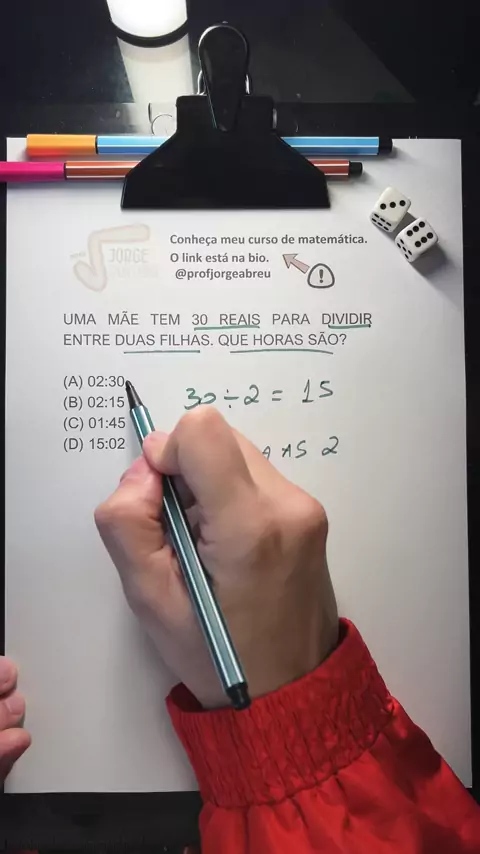 JORGE
Conheça meu curso de matemática.
O link está na bio.
@profjorgeabreu
UMA MÃE TEM 30 REAIS PARA DIVIDIR
ENTRE DUAS FILHAS. QUE HORAS SÃO?
(A) 02:30
(B) 02:15
(C) 01:45
(D) 15:02
30÷2 = 15
AS 2